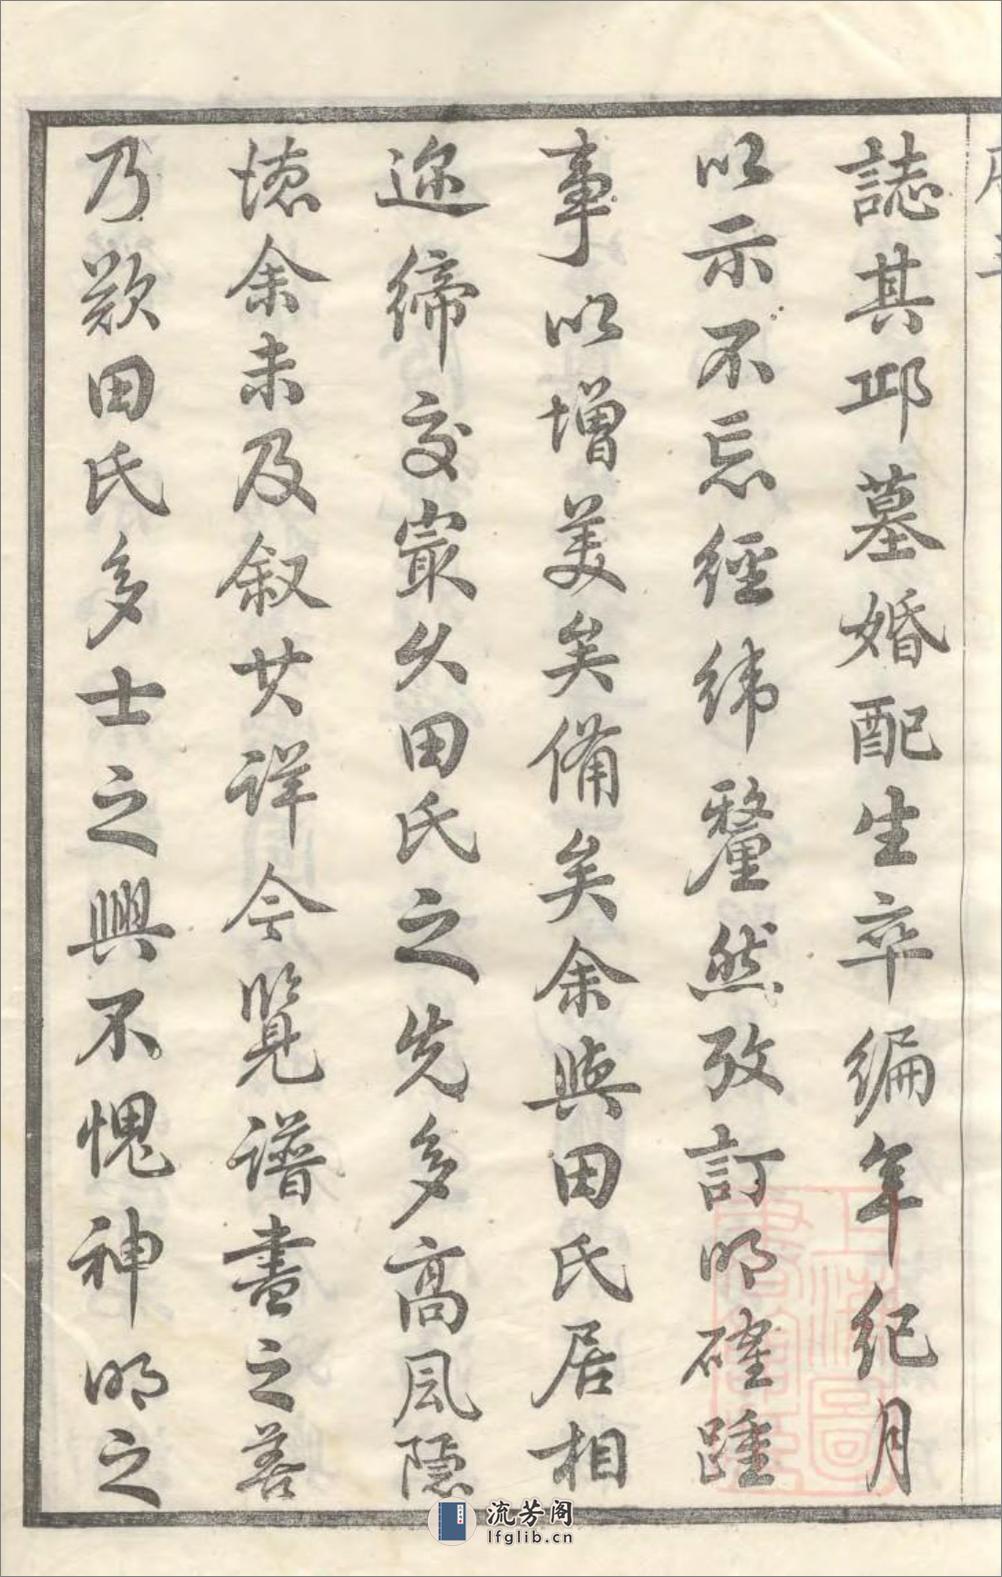 誌其邱墓婚配生卒編年紀月
以示不忘經緯釐然攷訂明確踵
事以增美矣備矣余與田氏居相
邇締交寂久田氏之先多高風隱
德余未及叙其詳今覽譜畫之善
乃歎田氏多士之興不愧神明之
流芳阁
lfglib.cn